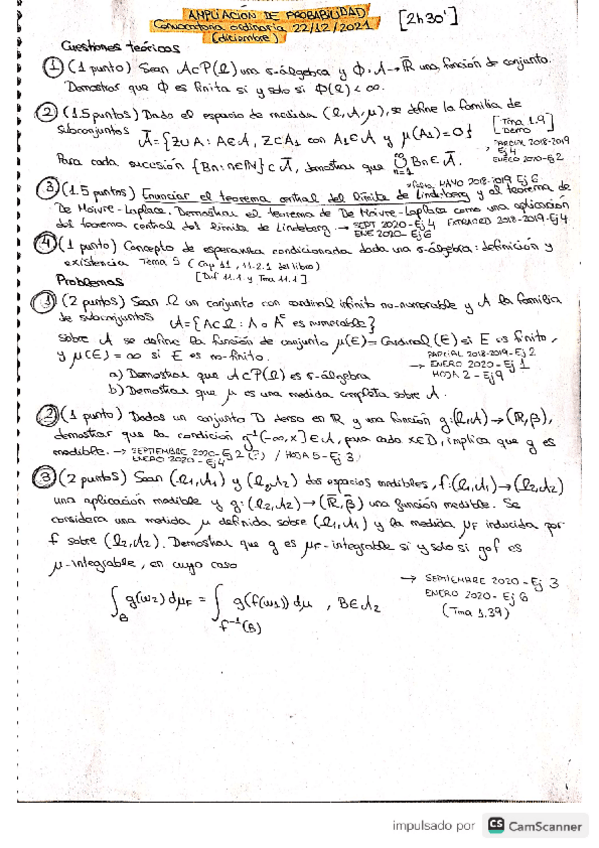 AMPLIACION DE PROBABILIDAD
Convocatoria ordinaria 22/12/2021 [2h 30']
(diciembre)
Cuestiones teóricas
① (1 punto) Sean A⊂P(Ω) una σ-álgebra y Φ: A→R̄ una función de conjunto.
Demostrar que Φ es finita si y solo si Φ(Ω) < ∞.
② (1.5 puntos) Dado el espacio de medida (Ω, A, μ), se define la familia de
subconjuntos Ā = {Z∪A : A∈A, Z⊂A₁ con A₁∈A y μ(A₁)=0} [Tma 1.9] Demo
, PARCIAL 2018-2019 Ej 4
ENERO 2020-Ej 2
Para cada sucesión {Bn : n∈N} ⊂ Ā, demostrar que ∪_{n=1}^∞ Bn ∈ Ā.
③ (1.5 puntos) Enunciar el teorema central del límite de Lindeberg y el teorema de
MAYO 2018-2019 Ej 6
De Moivre-Laplace. Demostrar el teorema de De Moivre-Laplace como una aplicación
del teorema central del límite de Lindeberg. → SEPT 2020-Ej 4 2018-2019-Ej 4
ENE 2020-Ej 6
④ (1 punto) Concepto de esperanza condicionada dada una σ-álgebra: definición y
existencia Tema 9 (Cap 11, 11.2.1 del libro)
[Def 11.1 y Tma 11.1]
Problemas
① (2 puntos) Sean Ω un conjunto con cardinal infinito no-numerable y A la familia
de subconjuntos
A = {A⊂Ω : A o Aᶜ es numerable}
Sobre A se define la función de conjunto μ(E) = Cardinal (E) si E es finito,
y μ(E) = ∞ si E es no-finito.
PARCIAL 2018-2019-Ej 2
→ ENERO 2020-Ej 1
HOJA 2 - Ej 9
a) Demostrar que A⊂P(Ω) es σ-álgebra
b) Demostrar que μ es una medida completa sobre A.
② (1 punto) Dados un conjunto D denso en R y una función g:(Ω,A)→(R,β),
demostrar que la condición g⁻¹(-∞,x]∈A, para cada x∈D, implica que g es
medible. → SEPTIEMBRE 2020-Ej 2 (?) / HOJA 5 - Ej 3
ENERO 2020-Ej 4
③ (2 puntos) Sean (Ω₁,A₁) y (Ω₂,A₂) dos espacios medibles, f:(Ω₁,A₁)→(Ω₂,A₂)
una aplicación medible y g:(Ω₂,A₂)→(R̄,β̄) una función medible. Se
considera una medida μ definida sobre (Ω₁,A₁) y la medida μF inducida por
f sobre (Ω₂,A₂). Demostrar que g es μF-integrable si y solo si g∘f es
μ-integrable, en cuyo caso
→ SEPTIEMBRE 2020-Ej 3
ENERO 2020-Ej 6
(Tma 1.39)
∫_B g(ω₂) dμF = ∫_{f⁻¹(B)} g(f(ω₁)) dμ , B∈A₂
impulsado por CS CamScanner